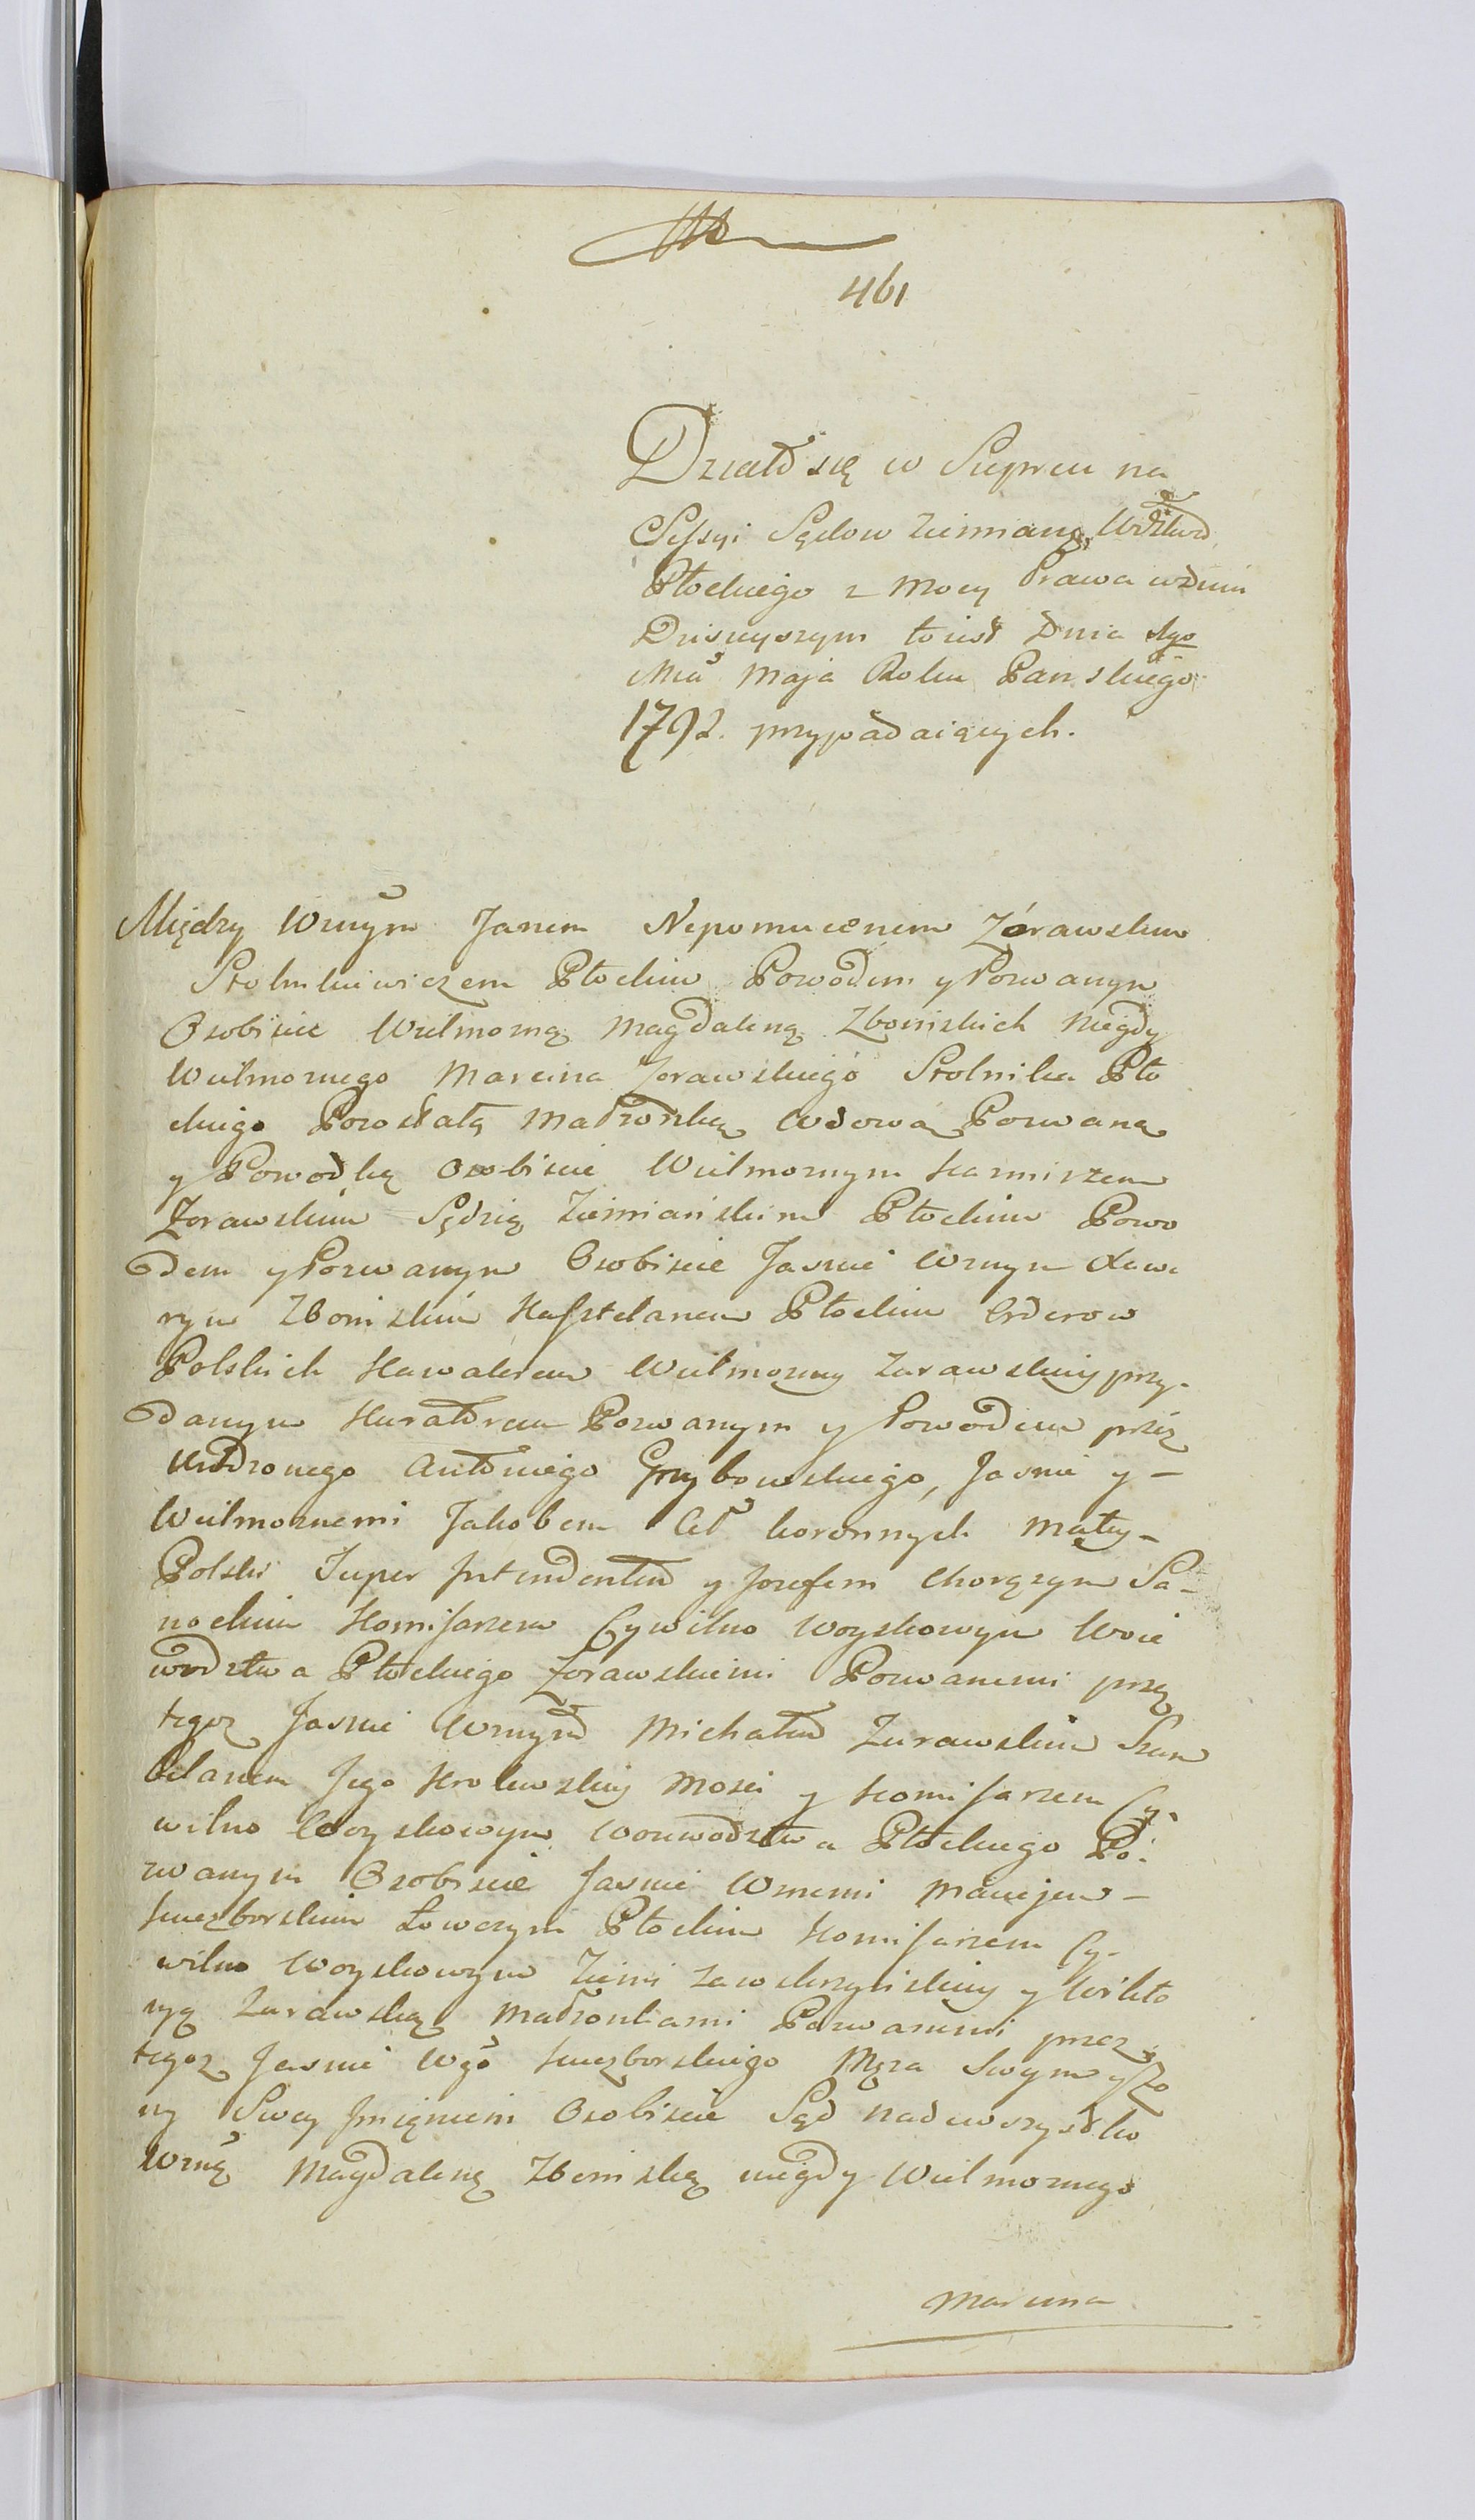 461
Działo się w Sieprcu na
Sessyi Sądow Ziemiang Wdztwa
Płockiego z Mocy Prawa wdniu
Dzisieyszym toiest Dnia
Mca Maja Roku Panskiego
1792. przypadaiących.
Między Wnym Janem Nepomucenem Zórawskim
Stolnikiewiczem Płockim Powodem y Pozwanym
Osobiscie Wielmozną Magdaleną Zboinskich niegdy
Wielmoznego Marcina Zorawskiego Stolnika Pło
ckiego Pozostałą Małzonką Wdową Pozwaną
y Powodką Osobiscie Wielmoznym Kazmirzem
Zorawskim Sędzią Ziemiańskim Płockim Powo
dem y Pozwanym Osobiscie Jasnie Wnym Xawe
rym Zboinskim Kasztelanem Płockim Orderow
Polskich Kawalerem Wielmozney Zurawskiey przy-
danym Kuratorem Pozwanym y Powodem przez
Urodzonego Antoniego Grzybowskiego, Jasnie y -
Wielmoznemi Jakobem Ceł koronnych Małey-
Polski Super Intendentem y Jozefem Chorązym Sa-
nockim Komisarzem Cywilno Woyskowym Woie
wodztwa Płockiego Zorawskiemi Pozwanemi przez
tegoz Jasnie Wnym Michałem Zurawskim Szam
belanem Jego Krolewskiey Mosci y Komisarzem Cy-
wilno Woyskowym Woiewodztwa Płockiego Po-
zwanym Osobiscie Jasnie Wnemi Maciejem -
Kuczborskim Łowczym Płockim Komisarzem Cy-
wilno Woyskowym Ziemi Zawskrzyńskiey y Wikto
ryą Zurawską Małzonkami Pozwanemi przez
tegoz Jasnie Wgo Kuczborskiego Męza Swym y Zo
ny Swey Imięniem Osobiscie Sąd nadewszystko
Wną Magdalenę Zboinską niegdy Wielmoznego
Marcina